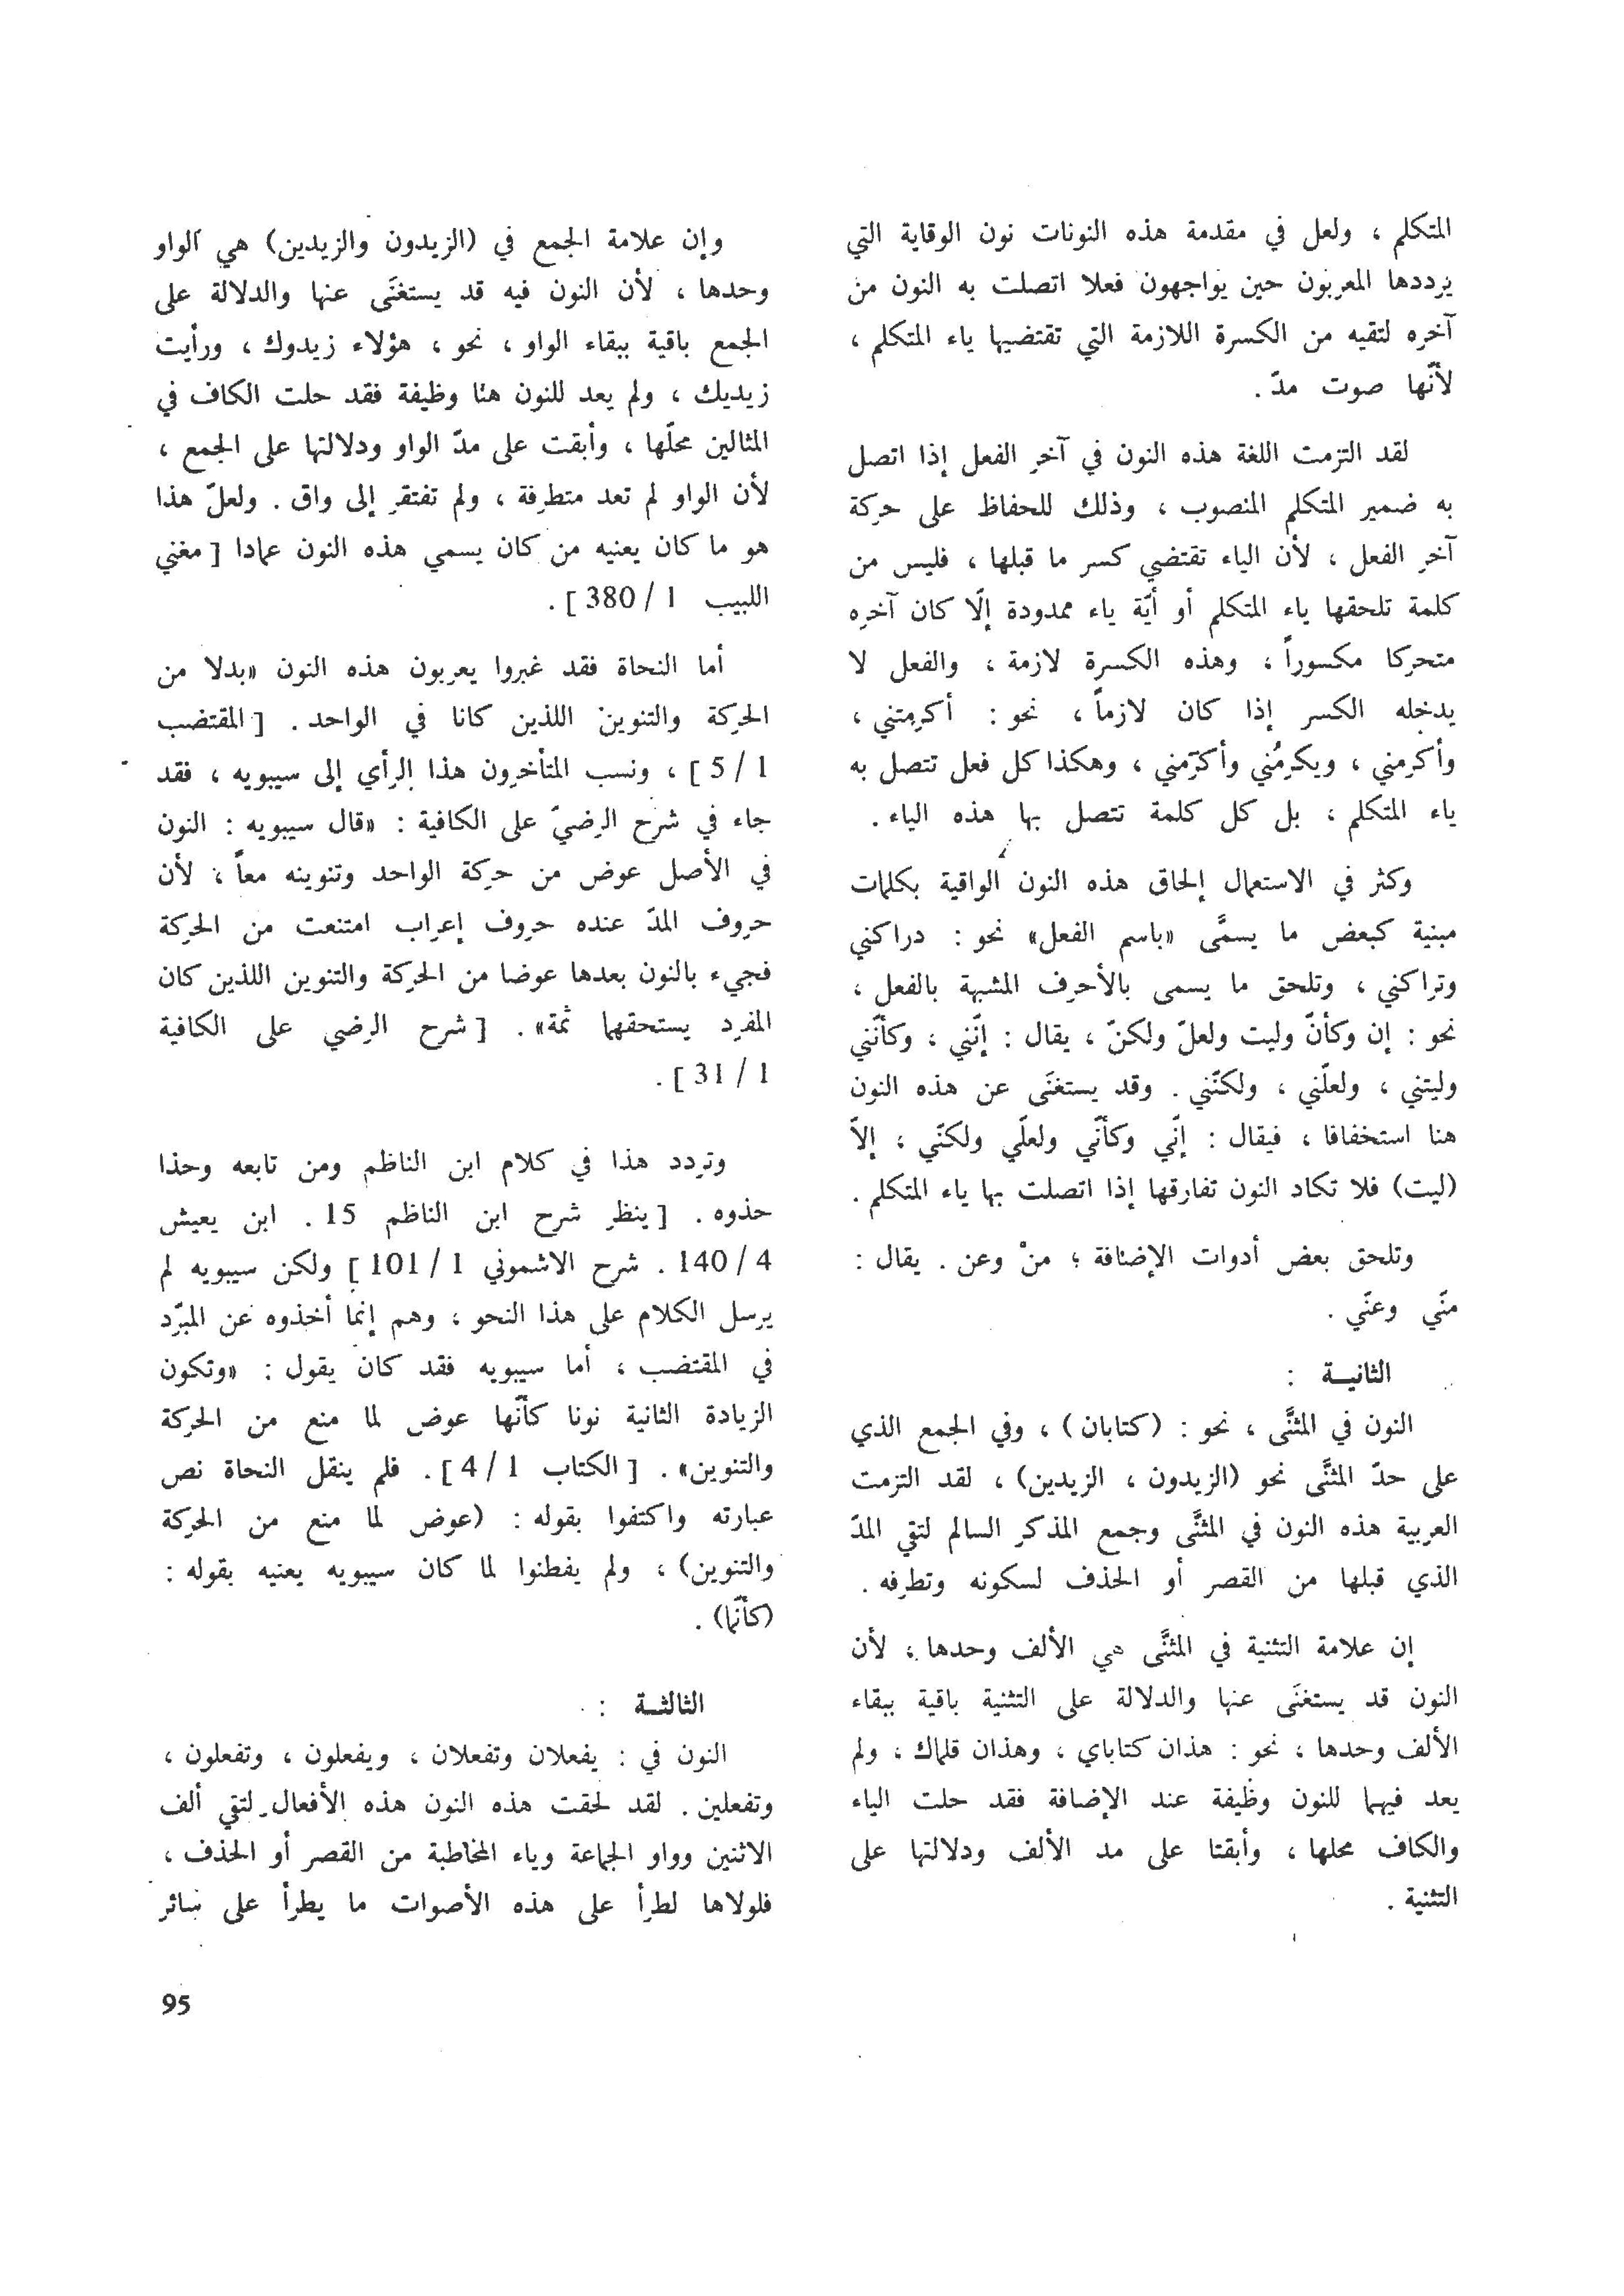 المتكلم ، ولعل في مقدمة هذه النونات نون الوقاية التي
يرددها المعربون حين يواجهون فعلا اتصلت به النون من
آخره لتقيه من الكسرة اللازمة التي تقتضيها ياء المتكلم ،
لأنّها صوت مدّ .
لقد التزمت اللغة هذه النون في آخر الفعل إذا اتصل
به ضمير المتكلم المنصوب ، وذلك للحفاظ على حركة
آخر الفعل ، لأن الياء تقتضي كسر ما قبلها ، فليس من
كلمة تلحقها ياء المتكلم أو أيّة ياء ممدودة إلّا كان آخره
متحركا مكسوراً ، وهذه الكسرة لازمة ، والفعل لا
يدخله الكسر إذا كان لازماً ، نحو : أكرمتني ،
وأكرمني ، ويكرمُني وأكرَمني ، وهكذا كل فعل تتصل به
ياء المتكلم ، بل كل كلمة تتصل بها هذه الياء .
وكثر في الاستعمال إلحاق هذه النون الواقية بكلمات
مبنية كبعض ما يسمَّى «باسم الفعل» نحو : دراكني
وتراكني ، وتلحق ما يسمى بالأحرف المشبهة بالفعل ،
نحو : إن وكأنّ وليت ولعلّ ولكنّ ، يقال : إنّني ، وكأنّني
وليتني ، ولعلّني ، ولكنّني . وقد يستغنَى عن هذه النون
هنا استخفافا ، فيقال : إنّي وكأنّي ولعلّي ولكنّي ، إلاّ
(ليت) فلا تكاد النون تفارقها إذا اتصلت بها ياء المتكلم .
وتلحق بعض أدوات الإضافة ؛ منْ وعن . يقال :
منّي وعنّي .
الثانيـة :
النون في المثنَّى ، نحو : (كتابان) ، وفي الجمع الذي
على حدّ المثنَّى نحو (الزيدون ، الزيدين) ، لقد التزمت
العربية هذه النون في المثنَّى وجمع المذكر السالم لتقي المدّ
الذي قبلها من القصر أو الحذف لسكونه وتطرفه .
إن علامة التثنية في المثنَّى هي الألف وحدها ، لأن
النون قد يستغنَى عنها والدلالة على التثنية باقية ببقاء
الألف وحدها ، نحو : هذان كتاباي ، وهذان قلماك ، ولم
يعد فيهما للنون وظيفة عند الإضافة فقد حلت الياء
والكاف محلها ، وأبقتا على مد الألف ودلالتها على
التثنية .
وإن علامة الجمع في (الزيدون والزيدين) هي الواو
وحدها ، لأن النون فيه قد يستغنَى عنها والدلالة على
الجمع باقية ببقاء الواو ، نحو ، هؤلاء زيدوك ، ورأيت
زيديك ، ولم يعد للنون هنا وظيفة فقد حلت الكاف في
المثالين محلّها ، وأبقت على مدّ الواو ودلالتها على الجمع ،
لأن الواو لم تعد متطرفة ، ولم تفتقر إلى واق . ولعلّ هذا
هو ما كان يعنيه من كان يسمي هذه النون عمادا [ مغني
اللبيب 1 / 380 ] .
أما النحاة فقد غبروا يعربون هذه النون «بدلا من
الحركة والتنوين اللذين كانا في الواحد . [ المقتضب
1 / 5 ] ، ونسب المتأخرون هذا الرأي إلى سيبويه ، فقد
جاء في شرح الرضيّ على الكافية : «قال سيبويه : النون
في الأصل عوض من حركة الواحد وتنوينه معاً ، لأن
حروف المدّ عنده حروف إعراب امتنعت من الحركة
فجيء بالنون بعدها عوضا من الحركة والتنوين اللذين كان
المفرد يستحقهما ثمة» . [ شرح الرضي على الكافية
1 / 31 ] .
وتردد هذا في كلام ابن الناظم ومن تابعه وحذا
حذوه . [ ينظر شرح ابن الناظم 15 . ابن يعيش
4 / 140 . شرح الاشموني 1 / 101 ] ولكن سيبويه لم
يرسل الكلام على هذا النحو ، وهم إنما أخذوه عن المبرّد
في المقتضب ، أما سيبويه فقد كان يقول : «وتكون
الزيادة الثانية نونا كأنّها عوض لما منع من الحركة
والتنوين» . [ الكتاب 1 / 4 ] . فلم ينقل النحاة نص
عبارته واكتفوا بقوله : (عوض لما منع من الحركة
والتنوين) ، ولم يفطنوا لما كان سيبويه يعنيه بقوله :
(كأنّها) .
الثالثـة :
النون في : يفعلان وتفعلان ، ويفعلون ، وتفعلون ،
وتفعلين . لقد لحقت هذه النون هذه الأفعال لتقي ألف
الاثنين وواو الجماعة وياء المخاطبة من القصر أو الحذف ،
فلولاها لطرأ على هذه الأصوات ما يطرأ على سائر
95